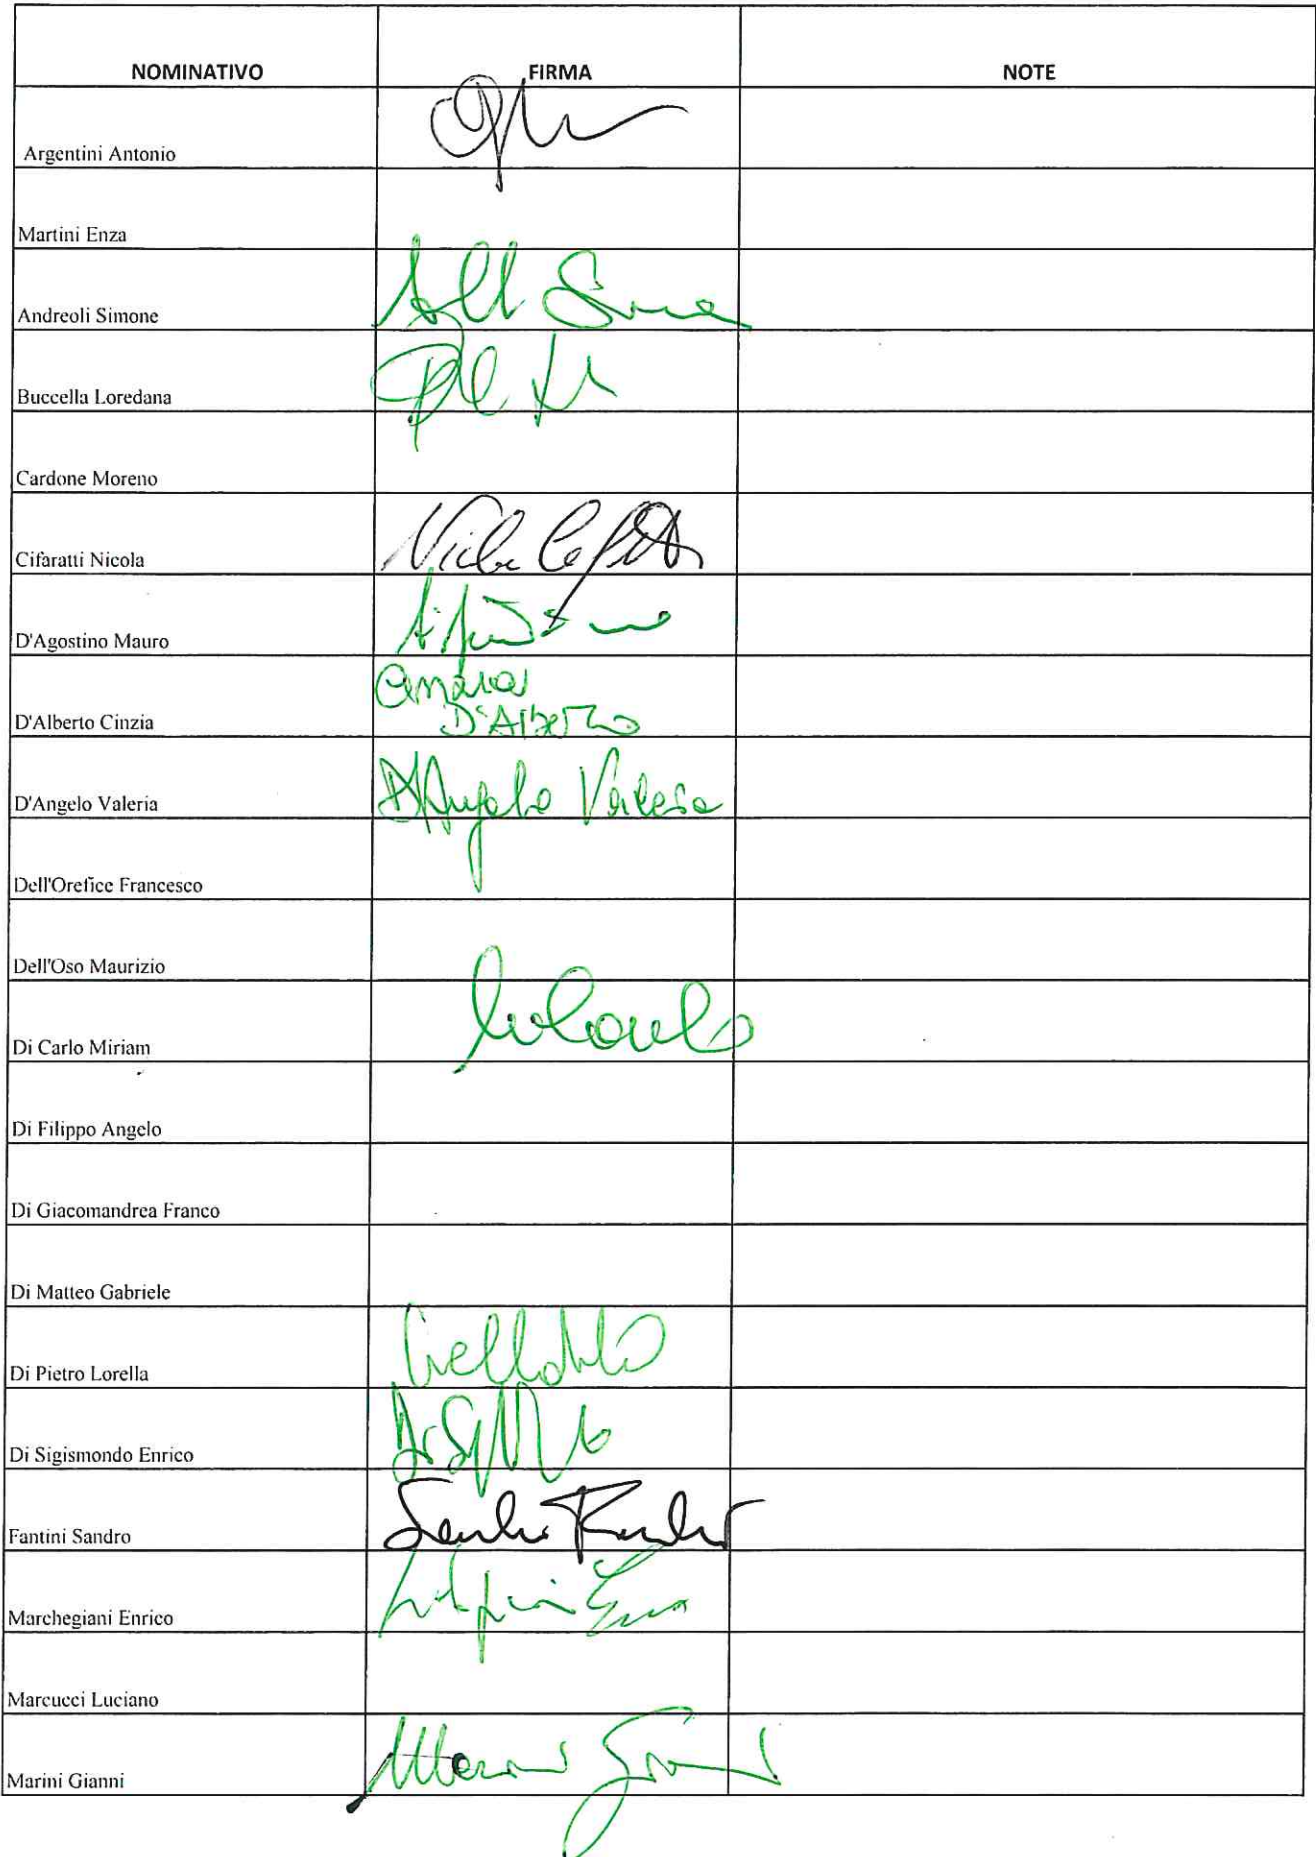 NOMINATIVO FIRMA NOTE
Argentini Antonio
Martini Enza
Andreoli Simone
Buccella Loredana
Cardone Moreno
Cifaratti Nicola
D'Agostino Mauro
D'Alberto Cinzia
D'Alberto
D'Angelo Valeria D'Angelo Valeria
Dell'Orefice Francesco
Dell'Oso Maurizio
Di Carlo Miriam
Di Filippo Angelo
Di Giacomandrea Franco
Di Matteo Gabriele
Di Pietro Lorella
Di Sigismondo Enrico
Fantini Sandro
Marchegiani Enrico
Marcucci Luciano
Marini Gianni